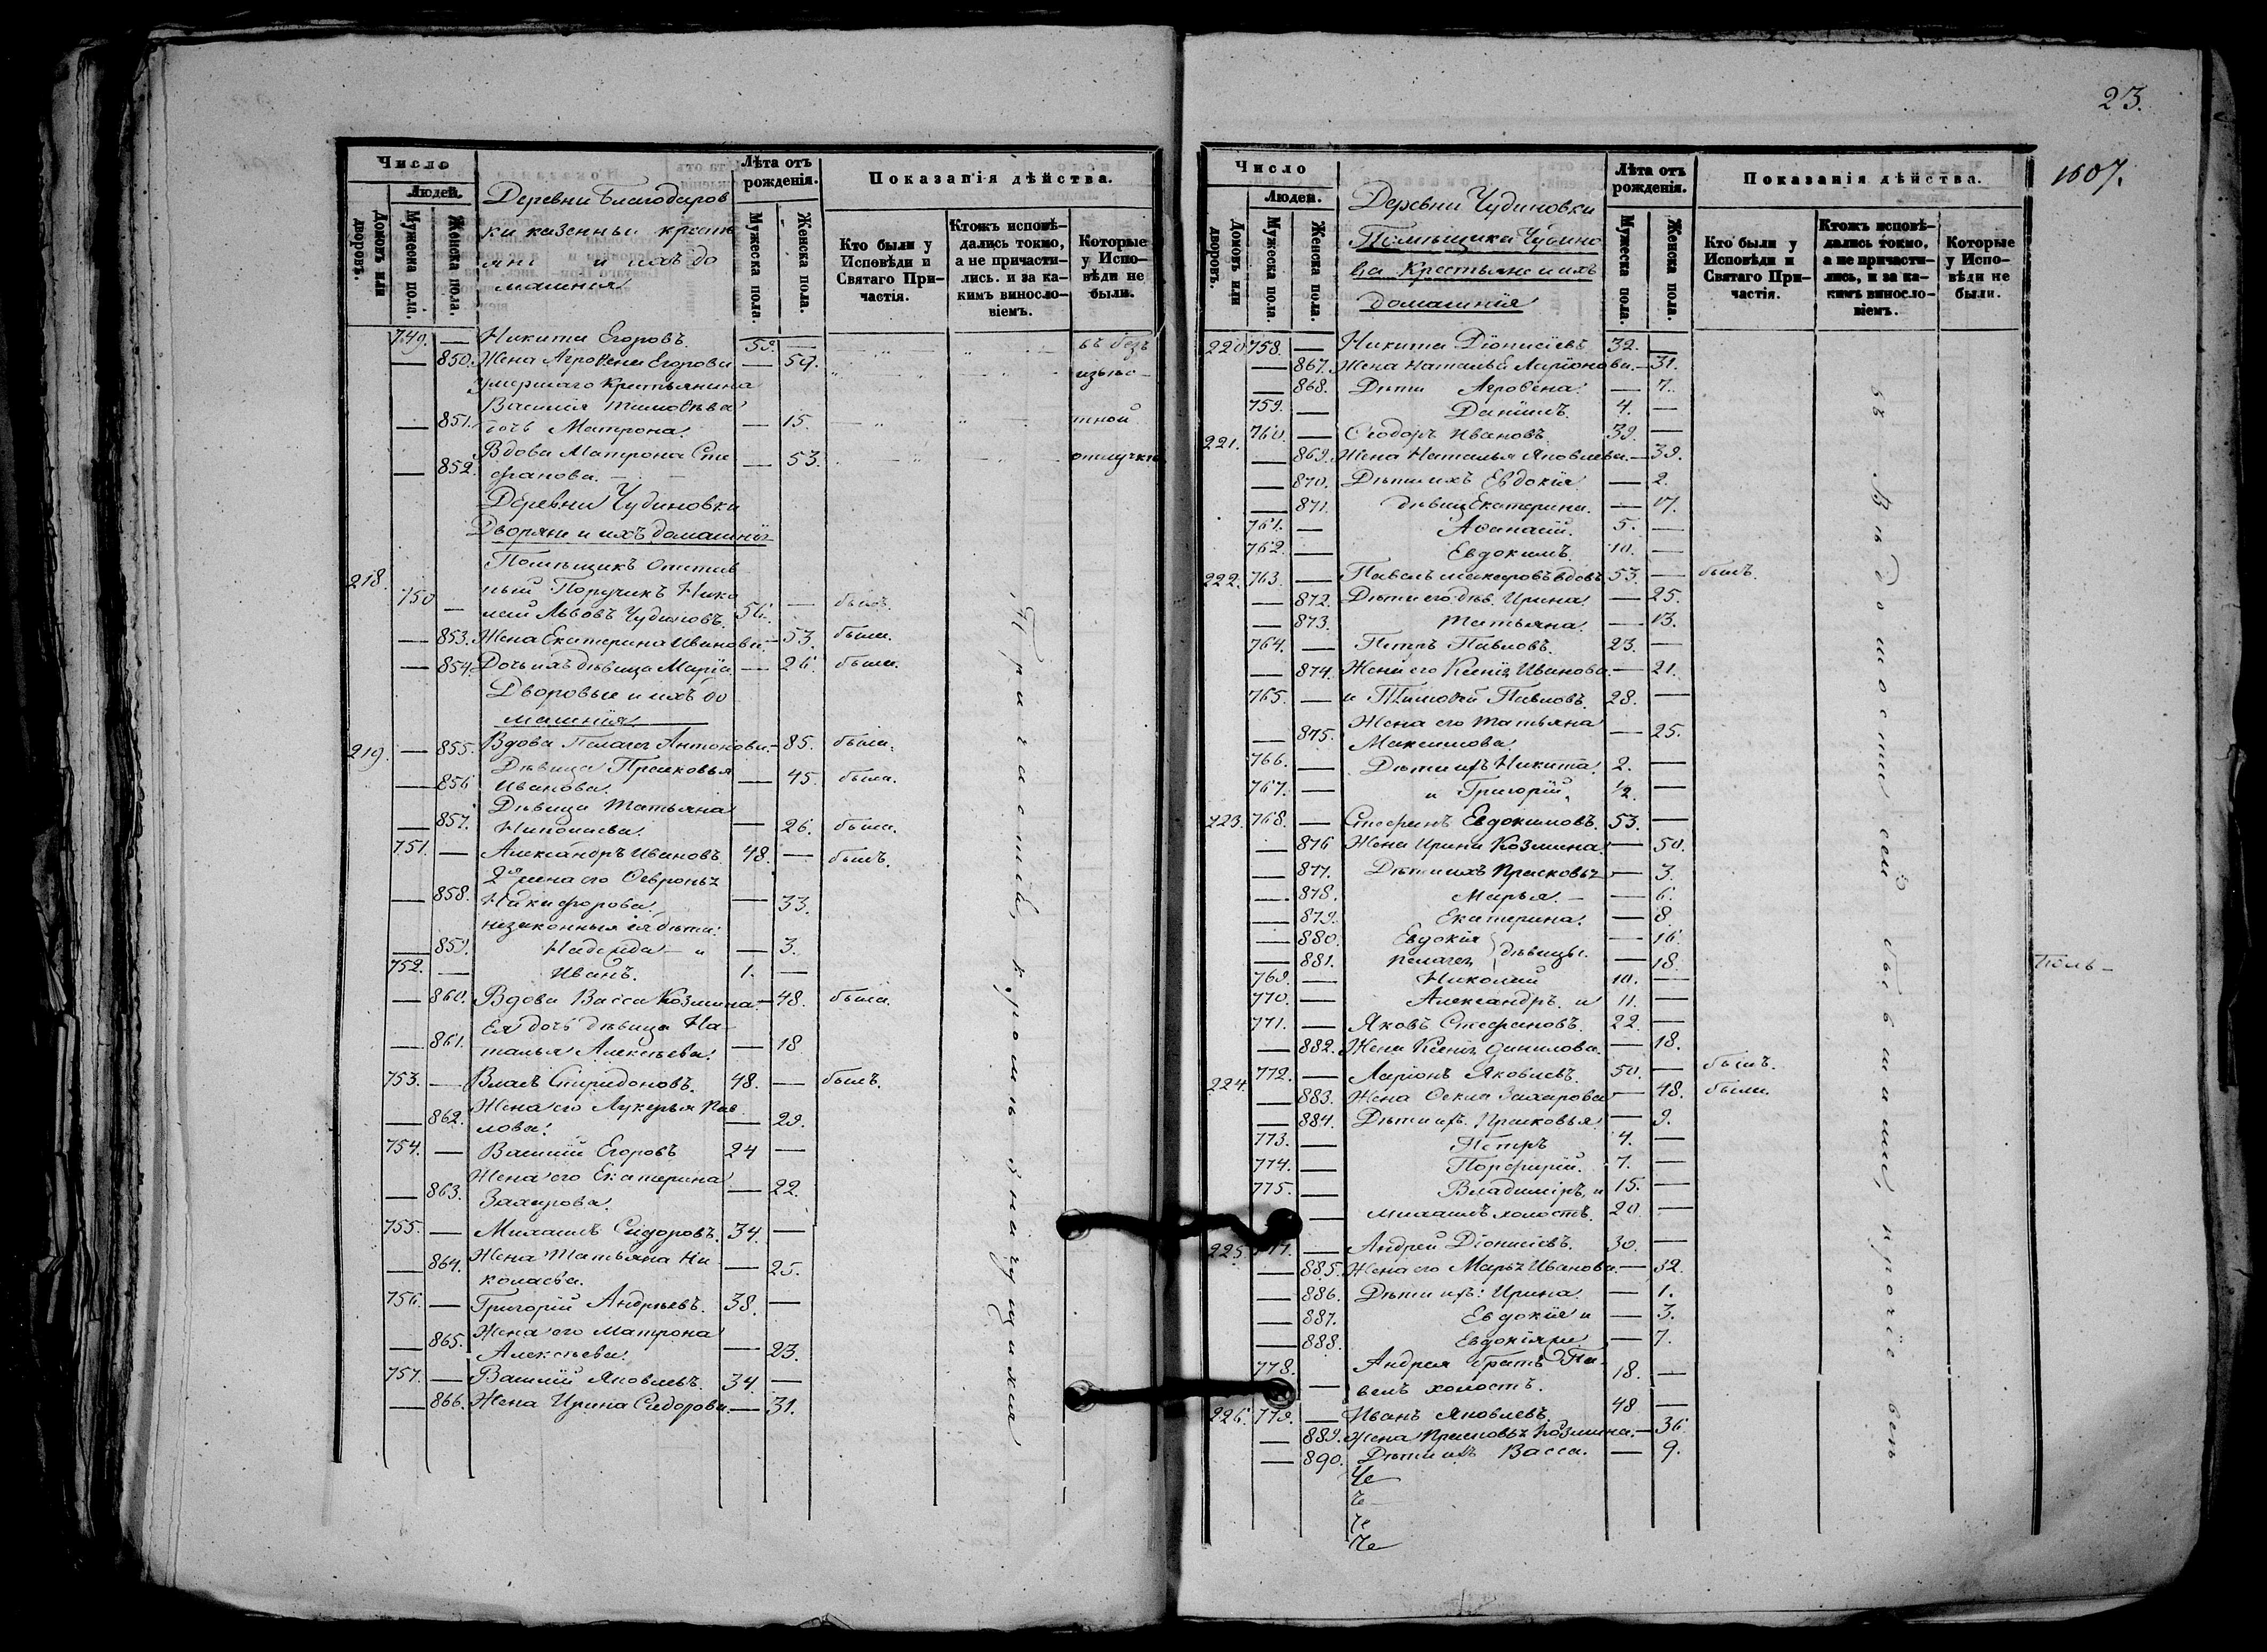 Число
Людей.
Домовъ или дворовъ.
Мужеска пола.
Женска пола.
Деревни Благодаров
ки казенные кресть
яне и ихъ до
машнія
Лѣта отъ рожденія.
Мужеска пола.
Женска пола.
Показанія дѣйства.
Кто были у Исповѣди и Святаго Причастія.
Ктожъ исповѣдались токмо, а не причастились. и за какимъ винословіемъ.
Которые у Исповѣди не были.
749. — Никита Егоровъ. 59. — въ безъ
— 850. Жена Агрофена Егорова — 59. извѣс-
умершаго крестьянина
Василія Тимофѣева
— 851. дочь Матрона. — 15. тной
Вдова Матрона Сте
— 852. фанова. — 53. отлучкѣ
Деревни Чудиновки
Дворяне и ихъ домашнія
Помѣщикъ Отстав
218. 750 — ный Поручикъ Нико
лай Львовъ Чудиновъ. 56. — былъ.
— 853. Жена Екатерина Иванова. — 53. была.
— 854. Дочь ихъ дѣвица Марія — 26. была.
Дворовые и ихъ до
машнія
219. — 855. Вдова Пелагея Антонова. — 85. была.
Дѣвица Прасковья
— 856 Иванова. — 45. была.
Дѣвица Татьяна
— 857. Николаева. — 26. была.
751. — Александръ Ивановъ. 48. — былъ.
2я жена его Февронья
— 858. Никифорова. — 33.
незаконныя ея дѣти:
— 859. Надежда — и — 3.
752. — Иванъ. 1. —
— 860. Вдова Васса Козмина. — 48. была.
Ея дочь дѣвица На-
— 861. талья Алексѣева. — 18
753. — Власъ Спиридоновъ. 48. — былъ.
Жена его Лукерья Пав
— 862. лова. — 29.
754. — Василій Егоровъ 24 —
Жена его Екатерина
— 863. Захарова. — 22.
755. — Михаилъ Сидоровъ. 34. —
— 864. Жена Татьяна Ни
колаева. — 25.
756. — Григорій Андреевъ. 38. —
— 865. Жена его Матрона
Алексѣева. — 23.
757. — Василій Яковлевъ. 34. —
— 866. Жена Ирина Сидорова. — 31.
23.
1607.
Число
Людей.
Домовъ или дворовъ.
Мужеска пола.
Женска пола.
Деревни Чудиновки
Помѣщика Чудино
ва Крестьяне и ихъ
домашнія
Лѣта отъ рожденія.
Мужеска пола.
Женска пола.
Показанія дѣйства.
Кто были у Исповѣди и Святаго Причастія.
Ктожъ исповѣдались токмо, а не причастились, и за какимъ винословіемъ.
Которые у Исповѣди не были.
220 758. — Никита Діонисіевъ 32. —
— 867. Жена Наталья Ларіонова. — 31.
— 868. Дѣти Агрофена: — 7.
759. — Даніилъ. 4. —
221. 760. — Ѳеодоръ Ивановъ. 39. —
— 869. Жена Наталья Яковлева. — 39.
— 870. Дѣти ихъ Евдокія — 2.
— 871. дѣвица Екатерина. — 17.
761. — Аѳанасій. 5. —
762. — Евдокимъ. 10. —
222. 763. — Павелъ Макаровъ вдовъ 53. — былъ.
— 872. Дѣти его: дѣв. Ирина. — 25.
— 873. Татьяна. — 13.
764. — Петръ Павловъ. 23. —
— 874. Жена его Ксенія Иванова. — 21.
765. — и Тимоѳей Павловъ. 28. —
Жена его Татьяна
— 875. Максимова. — 25.
766. — Дѣти ихъ Никита. 2. —
767. — и Григорій. 1/2. —
223. 768. — Стефанъ Евдокимовъ. 53. —
— 876 Жена Ирина Козмина. — 50.
— 877. Дѣти ихъ Прасковья — 3.
— 878. Марья. — — 6.
— 879. Екатерина. — 8.
— 880. Евдокія — 16.
дѣвицы.
— 881. Пелагея — 18.
769. — Николай 10. —
770. — Александръ. и 11. —
771. — Яковъ Стефановъ. 22. —
— 882. Жена Ксенія Данилова. — 18.
224. 772. — Ларіонъ Яковлевъ. 50. — былъ.
— 883. Жена Ѳекла Захарова — 48. была.
— 884. Дѣти ихъ. Прасковья. — 9.
773. — Петръ 4. —
774. — Порфирій. 7. —
775. — Владиміръ, и 15. —
— Михаилъ холостъ. 20. —
225. 777. — Андрей Діонисіевъ. 30. —
— 885. Жена его Марья Иванова. — 32.
— 886. Дѣти ихъ: Ирина. — 1.
— 887. Евдокія и — 3.
— 888. Евдокія же — 7.
778. — Андрея братъ Па-
велъ холостъ. 18. —
226. 779. — Иванъ Яковлевъ. 48 —
— 889. Жена Прасковья Козмина. — 36
— 890. Дѣти ихъ Васса. — 9.